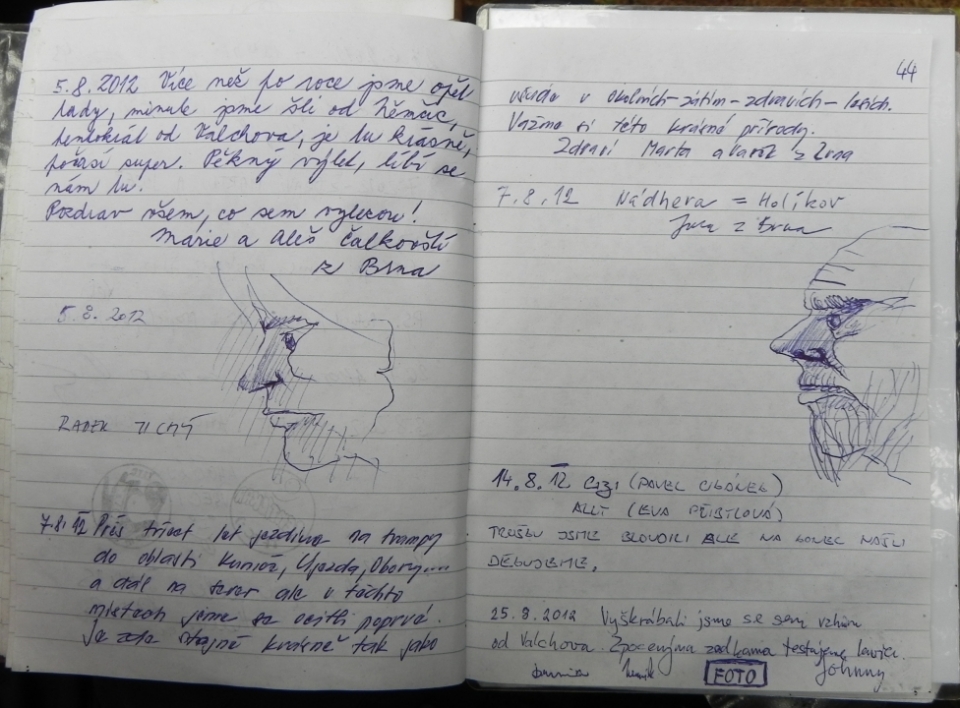 5.8.2012 Více než po roce jsme opět
tady, minule jsme šli od Němčic,
tentokrát od Valchova, je tu krásně,
počasí super. Pěkný výlet, líbí se
nám tu.
Pozdrav všem, co sem vylezou!
Marie a Aleš Čalkovští
z Brna
5.8.2012
RADEK TICHÝ
7.8.12 Přes třicet let jezdíme na trampy
do oblasti Kunice, Újezda, Obory....
a dál na sever ale v těchto
místech jsme se ocitli poprvé.
Je zde stejně krásně tak jako
44
všude v okolních-zatím-zdravích-lesích.
Važme si této krásné přírody.
Zdraví Marta a z Brna
7.8.12 Nádhera = Holíkov
z Brna
14.8.12 (PAVEL)
(EVA)
TROŠKU JSME BLOUDILI ALE NA KONEC NAŠLI
DĚKUJEME.
25.8.2012 Vyškrábali jsme se sem vzhůru
od Valchova. Zpocenýma zadkama testujeme lavici.
FOTO Johnny